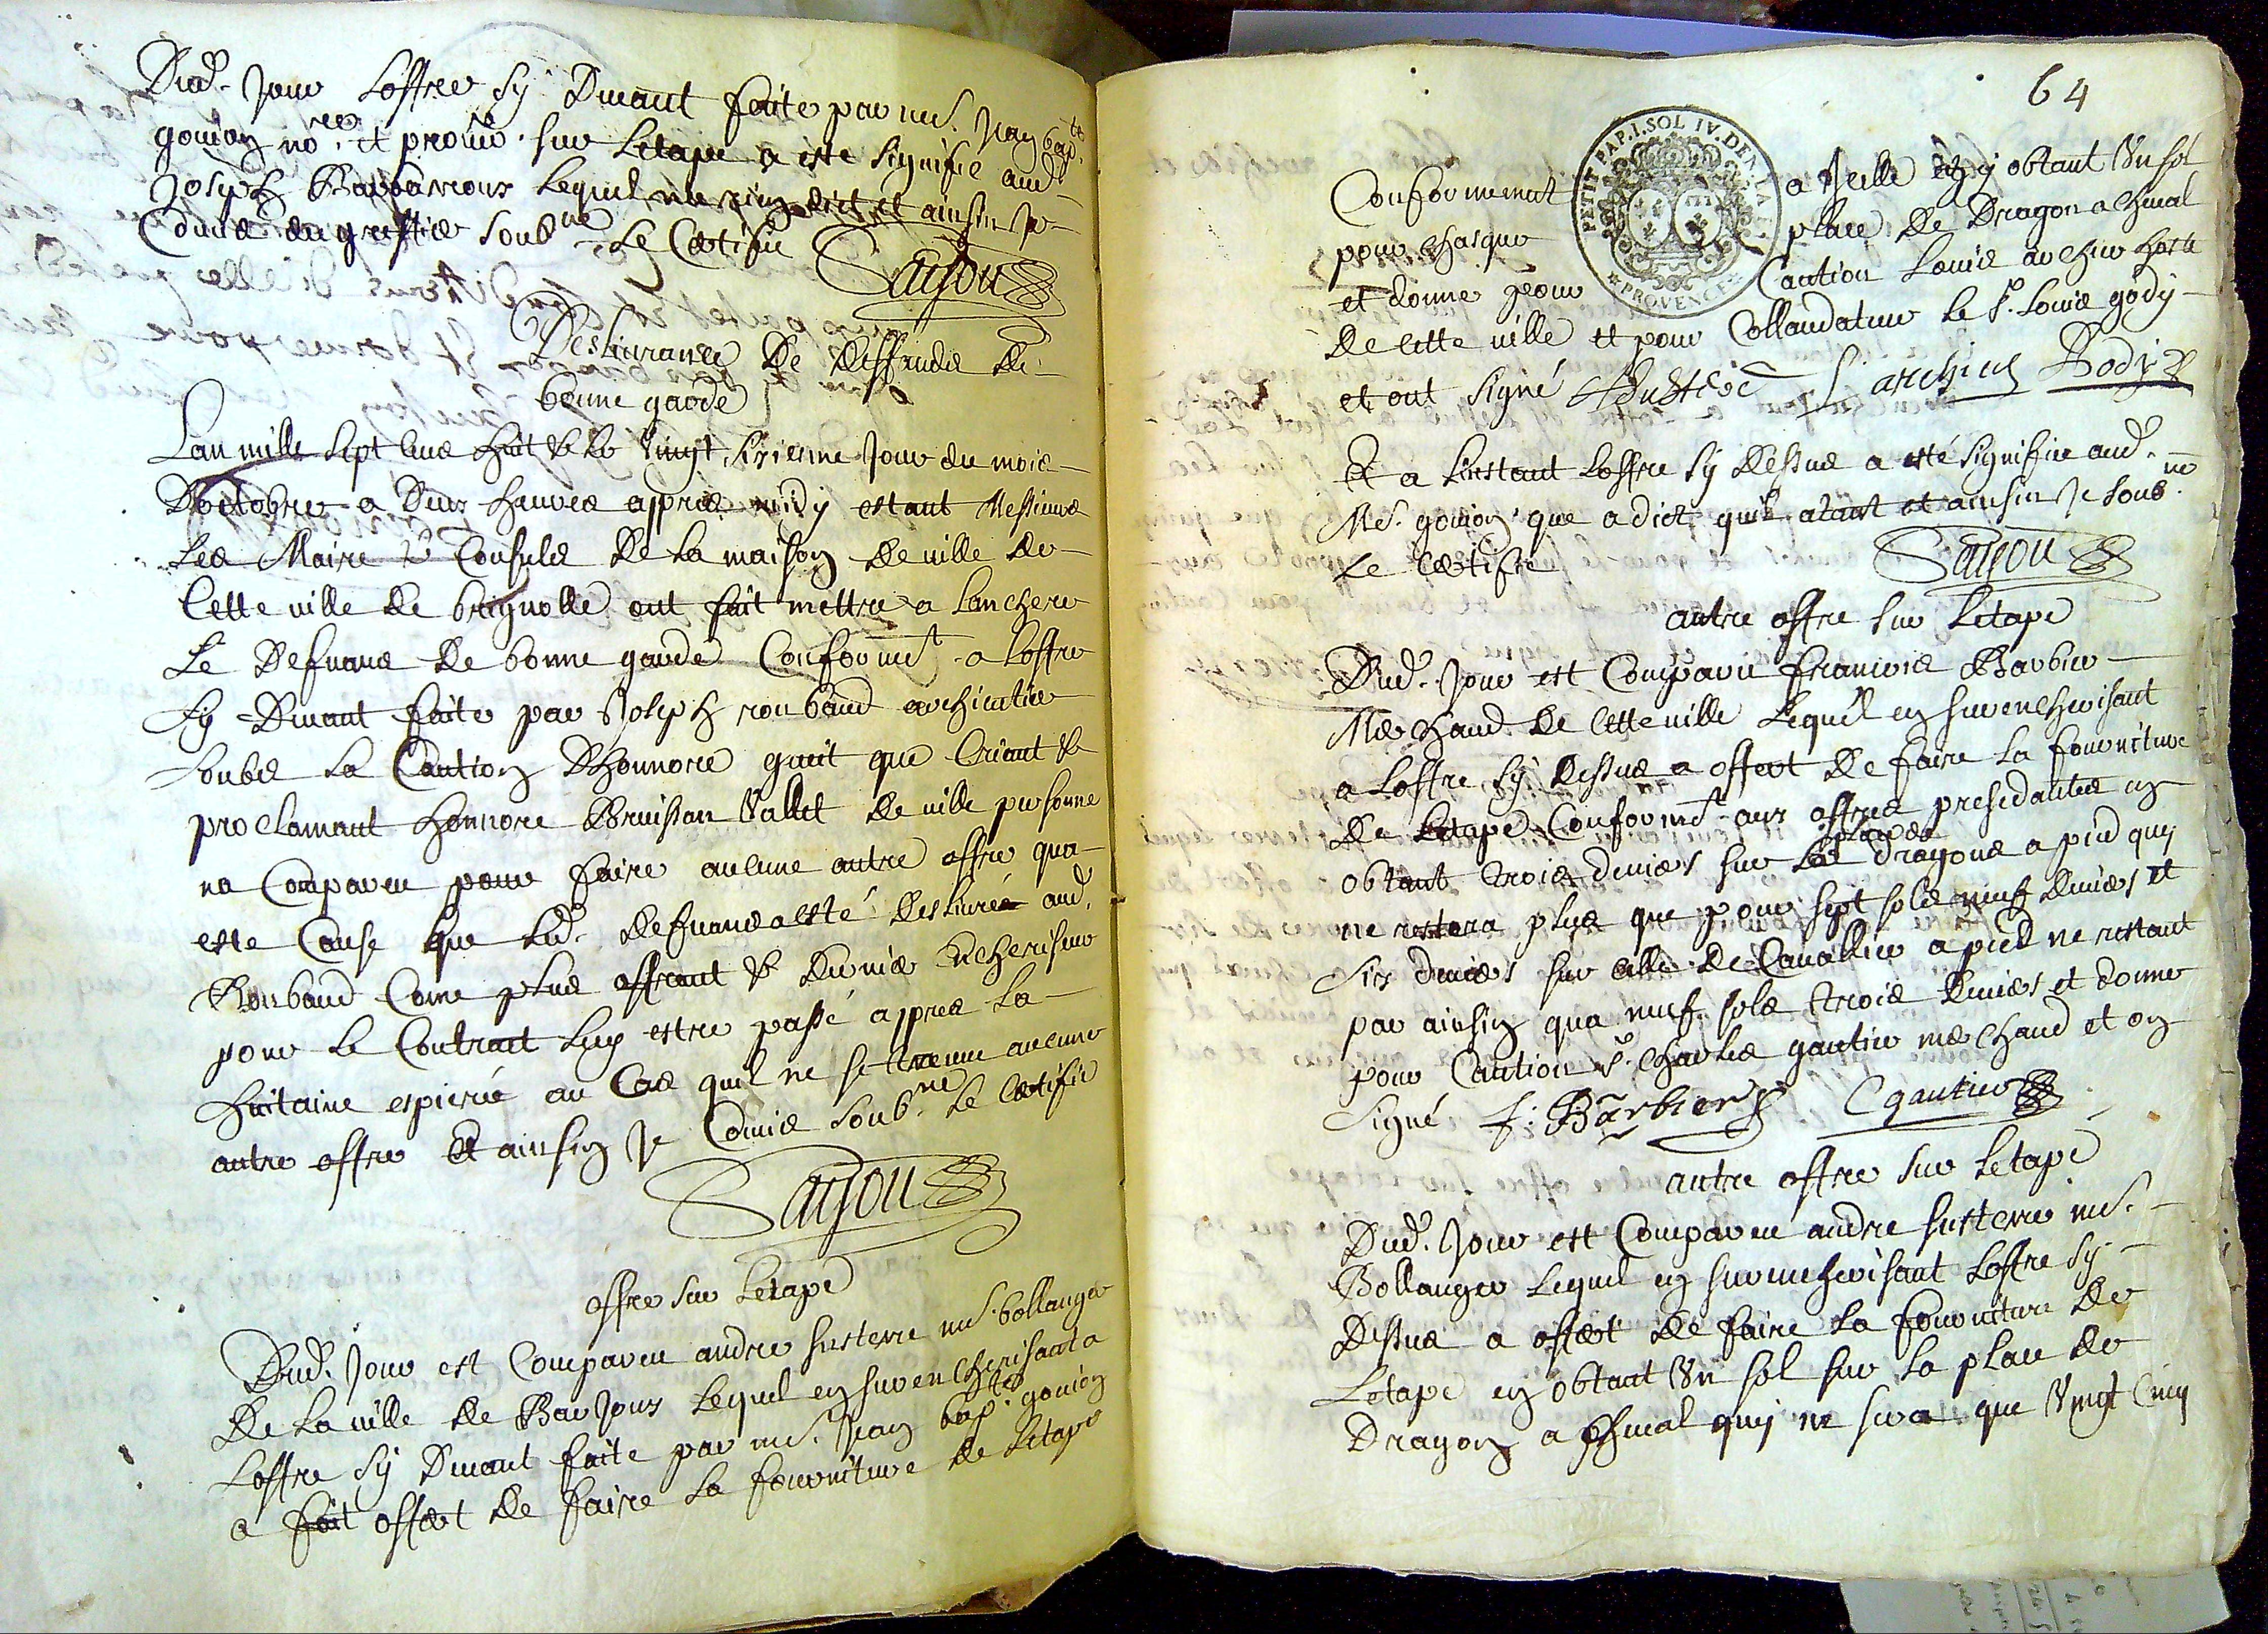 Dud. Jour Loffre sy Devant faite par me. Jean bapte
gouion nore. et procur. sur Letape a este signifie aud.
Joseph Barbarroux Lequel ne rien dict et ainsin Je
Comis du greffier soubne. Le Certifie
Saison
Desliurance De Deffandz De
bonne garde
Lan mille sept cens huit & le Vingt sixiesme Jour du mois
Doctobre a Deux heures appres midy estant Messieurs
Les Maire & Consuls De La maison de ville de
Cette ville De brignolle ont fait mettre a Lanchere
Le Defuans De bonne garde Conformt. a Loffre
sy Devant faite par Joseph roubaud archiutier
soubs La Caution Dhonnore gueit que Criant &
proclamant honnore Bruissan Vallet De ville personne
na Comparu pour faire aucune autre offre qua
este Cause que Led. Defuans a esté Desliurée aud.
Roubaud Come plus offrant & Dernier Encherisseur
pour Le Contract Luy estre passé appres La
huitaine espierée au Cas quil ne se treuue aucune
autre offre Et ainsin Je Comis soubne. Le Certifie
Saison
offre sur Letape
Dud. Jour est Comparu andre susterre me. bollanger
De La ville de Barjoux Lequel en surencherisant a
Loffre sy Devant faite par me. Jean bapte. gouion
a fait offert De faire La fourniture De Letape
64
PETIT PAP. I. SOL IV. DEN. LA FE.
PROVENCE
Conformement a Jcelle en y obtant Un sol
pour chasque place De Dragon a cheual
et donne pour Caution Louis archier hoste
De Cette ville et pour Collaudateur Le Sr. Louis gody
et ont signé ASusterre L archier Body
Et a Linstant Loffre sy Dessus a esté signifie aud.
Me. gouion que a dict quil atant et ainsin Je soubne.
Le Certifie
Saison
autre offre sur Letape
Dud. Jour est Comparu francois Barbier
Marchand De Cette ville Lequel en surencherisant
a Loffre sy Dessus a offert De faire La fourniture
De Letape Conformt. aux offres presedantes en
obtant trois deniers sur Les places dragons a pied quy
ne restera plus que pour sept sols neuf Deniers et
six deniers sur celle De Cauallier a pied ne restant
par ainsin qua neuf sols trois Deniers et donne
pour Caution Sr. Charles gautier marchand et on
Signé f: Barbier Cgautier
autre offre sur Letape
Dud. Jour est Comparu andre susterre me.
Bollanger Lequel en surencherisant Loffre sy
Dessus a offert De faire La fourniture De
Letape en obtant Un sol sur La place De
Dragon a Cheual quy ne sera que Vingt Cinq